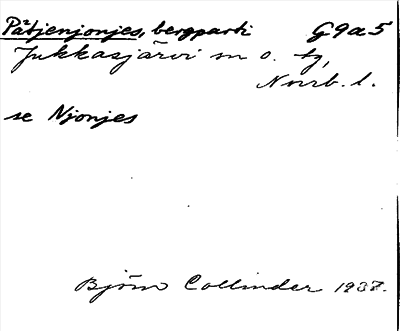 Påtjenjonjes, bergparti G9a5
Jukkasjärvi sn o. tg,
Norrb. l.
se Njonjes
Björn Collinder 1937.